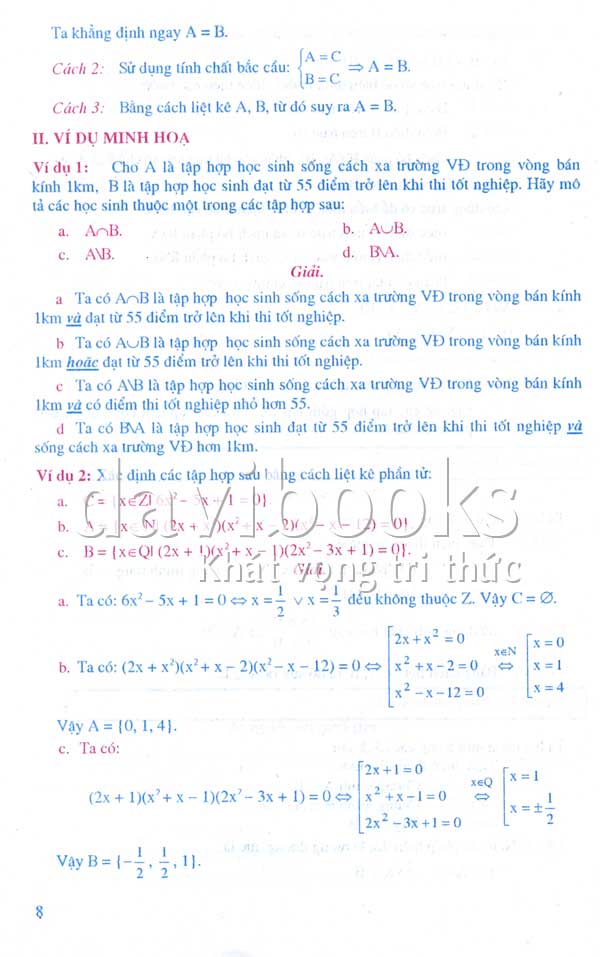 Ta khẳng định ngay A = B.
Cách 2: Sử dụng tính chất bắc cầu: {A = C, B = C ⇒ A = B.
Cách 3: Bằng cách liệt kê A, B, từ đó suy ra A = B.
II. VÍ DỤ MINH HOẠ
Ví dụ 1: Cho A là tập hợp học sinh sống cách xa trường VĐ trong vòng bán
kính 1km, B là tập hợp học sinh đạt từ 55 điểm trở lên khi thi tốt nghiệp. Hãy mô
tả các học sinh thuộc một trong các tập hợp sau:
a. A∩B. b. A∪B.
c. A\B. d. B\A.
Giải.
a Ta có A∩B là tập hợp học sinh sống cách xa trường VĐ trong vòng bán kính
1km và đạt từ 55 điểm trở lên khi thi tốt nghiệp.
b Ta có A∪B là tập hợp học sinh sống cách xa trường VĐ trong vòng bán kính
1km hoặc đạt từ 55 điểm trở lên khi thi tốt nghiệp.
c Ta có A\B là tập hợp học sinh sống cách xa trường VĐ trong vòng bán kính
1km và có điểm thi tốt nghiệp nhỏ hơn 55.
d Ta có B\A là tập hợp học sinh đạt từ 55 điểm trở lên khi thi tốt nghiệp và
sống cách xa trường VĐ hơn 1km.
Ví dụ 2: Xác định các tập hợp sau bằng cách liệt kê phần tử:
davibooks
a. C = {x∈Z| 6x² − 5x + 1 = 0}.
b. A = {x∈N| (2x + x²)(x² + x − 2)(x² − x − 12) = 0}.
c. B = {x∈Q| (2x + 1)(x² + x − 1)(2x² − 3x + 1) = 0}.
Khát vọng tri thức
Giải.
a. Ta có: 6x² − 5x + 1 = 0 ⇔ x = 1/2 ∨ x = 1/3 đều không thuộc Z. Vậy C = ∅.
b. Ta có: (2x + x²)(x² + x − 2)(x² − x − 12) = 0 ⇔ [2x + x² = 0, x² + x − 2 = 0, x² − x − 12 = 0 x∈N ⇔ [x = 0, x = 1, x = 4
Vậy A = {0, 1, 4}.
c. Ta có:
(2x + 1)(x² + x − 1)(2x² − 3x + 1) = 0 ⇔ [2x + 1 = 0, x² + x − 1 = 0, 2x² − 3x + 1 = 0 x∈Q ⇔ [x = 1, x = ± 1/2
Vậy B = {−1/2, 1/2, 1}.
8